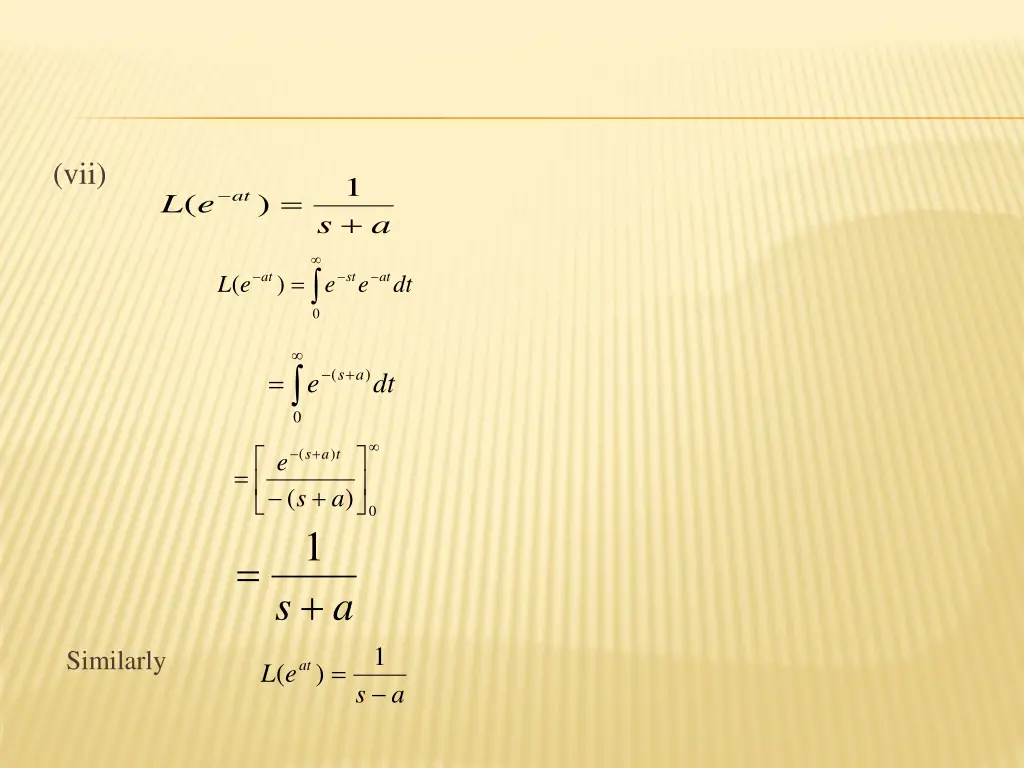 (vii)
L(e^{-at}) = \frac{1}{s+a}
L(e^{-at}) = \int_{0}^{\infty} e^{-st} e^{-at} dt
= \int_{0}^{\infty} e^{-(s+a)} dt
= \left[ \frac{e^{-(s+a)t}}{-(s+a)} \right]_{0}^{\infty}
= \frac{1}{s+a}
Similarly L(e^{at}) = \frac{1}{s-a}